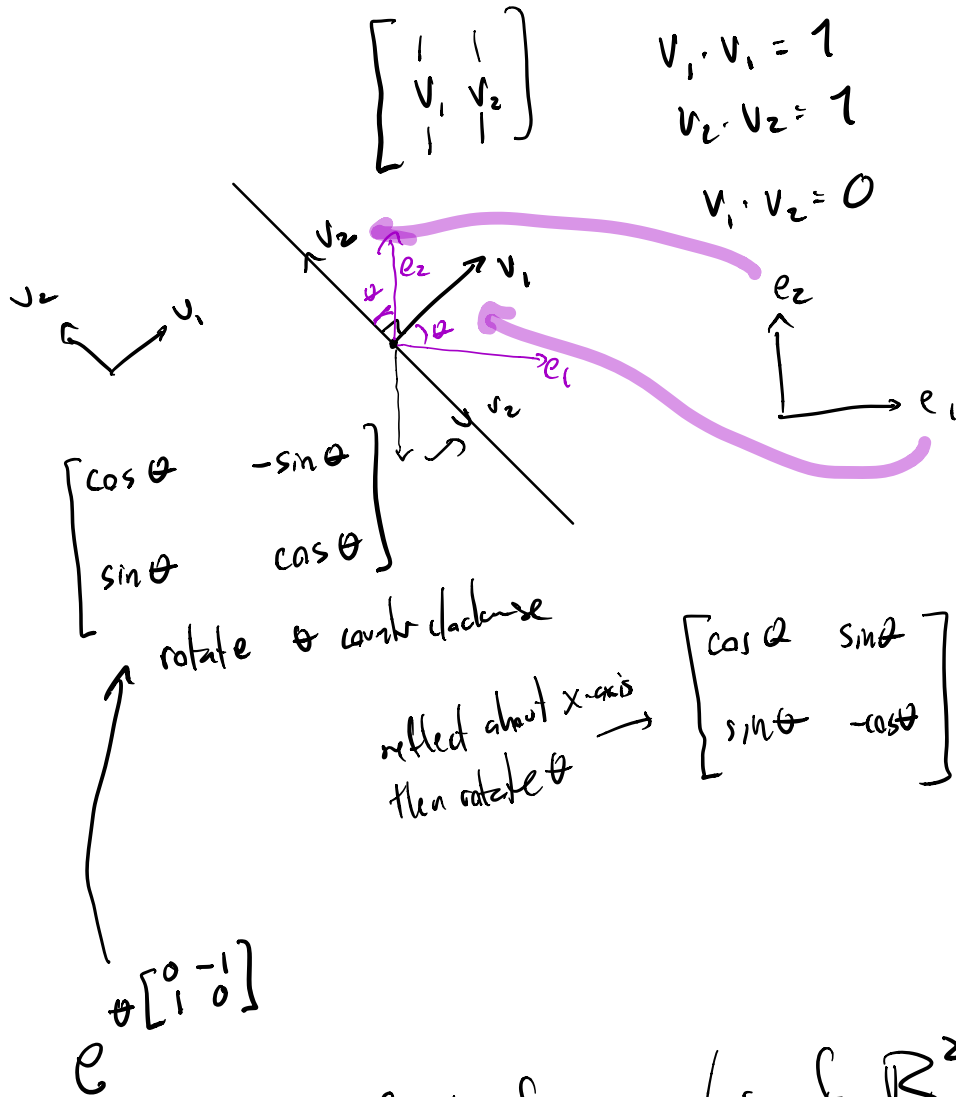 [ | | ]
[ V₁ V₂ ]
[ | | ]
V₁ · V₁ = 1
V₂ · V₂ = 1
V₁ · V₂ = 0
V₂
e₂
V₁
θ
θ
e₁
V₂
V₂
V₁
e₂
e₁
[ cos θ -sin θ ]
[ sin θ cos θ ]
rotate θ
reflect about x-axis
then rotate θ
[ cos θ sin θ ]
[ sin θ -cos θ ]
e^θ[ 0 -1 ; 1 0 ]
ℝ²